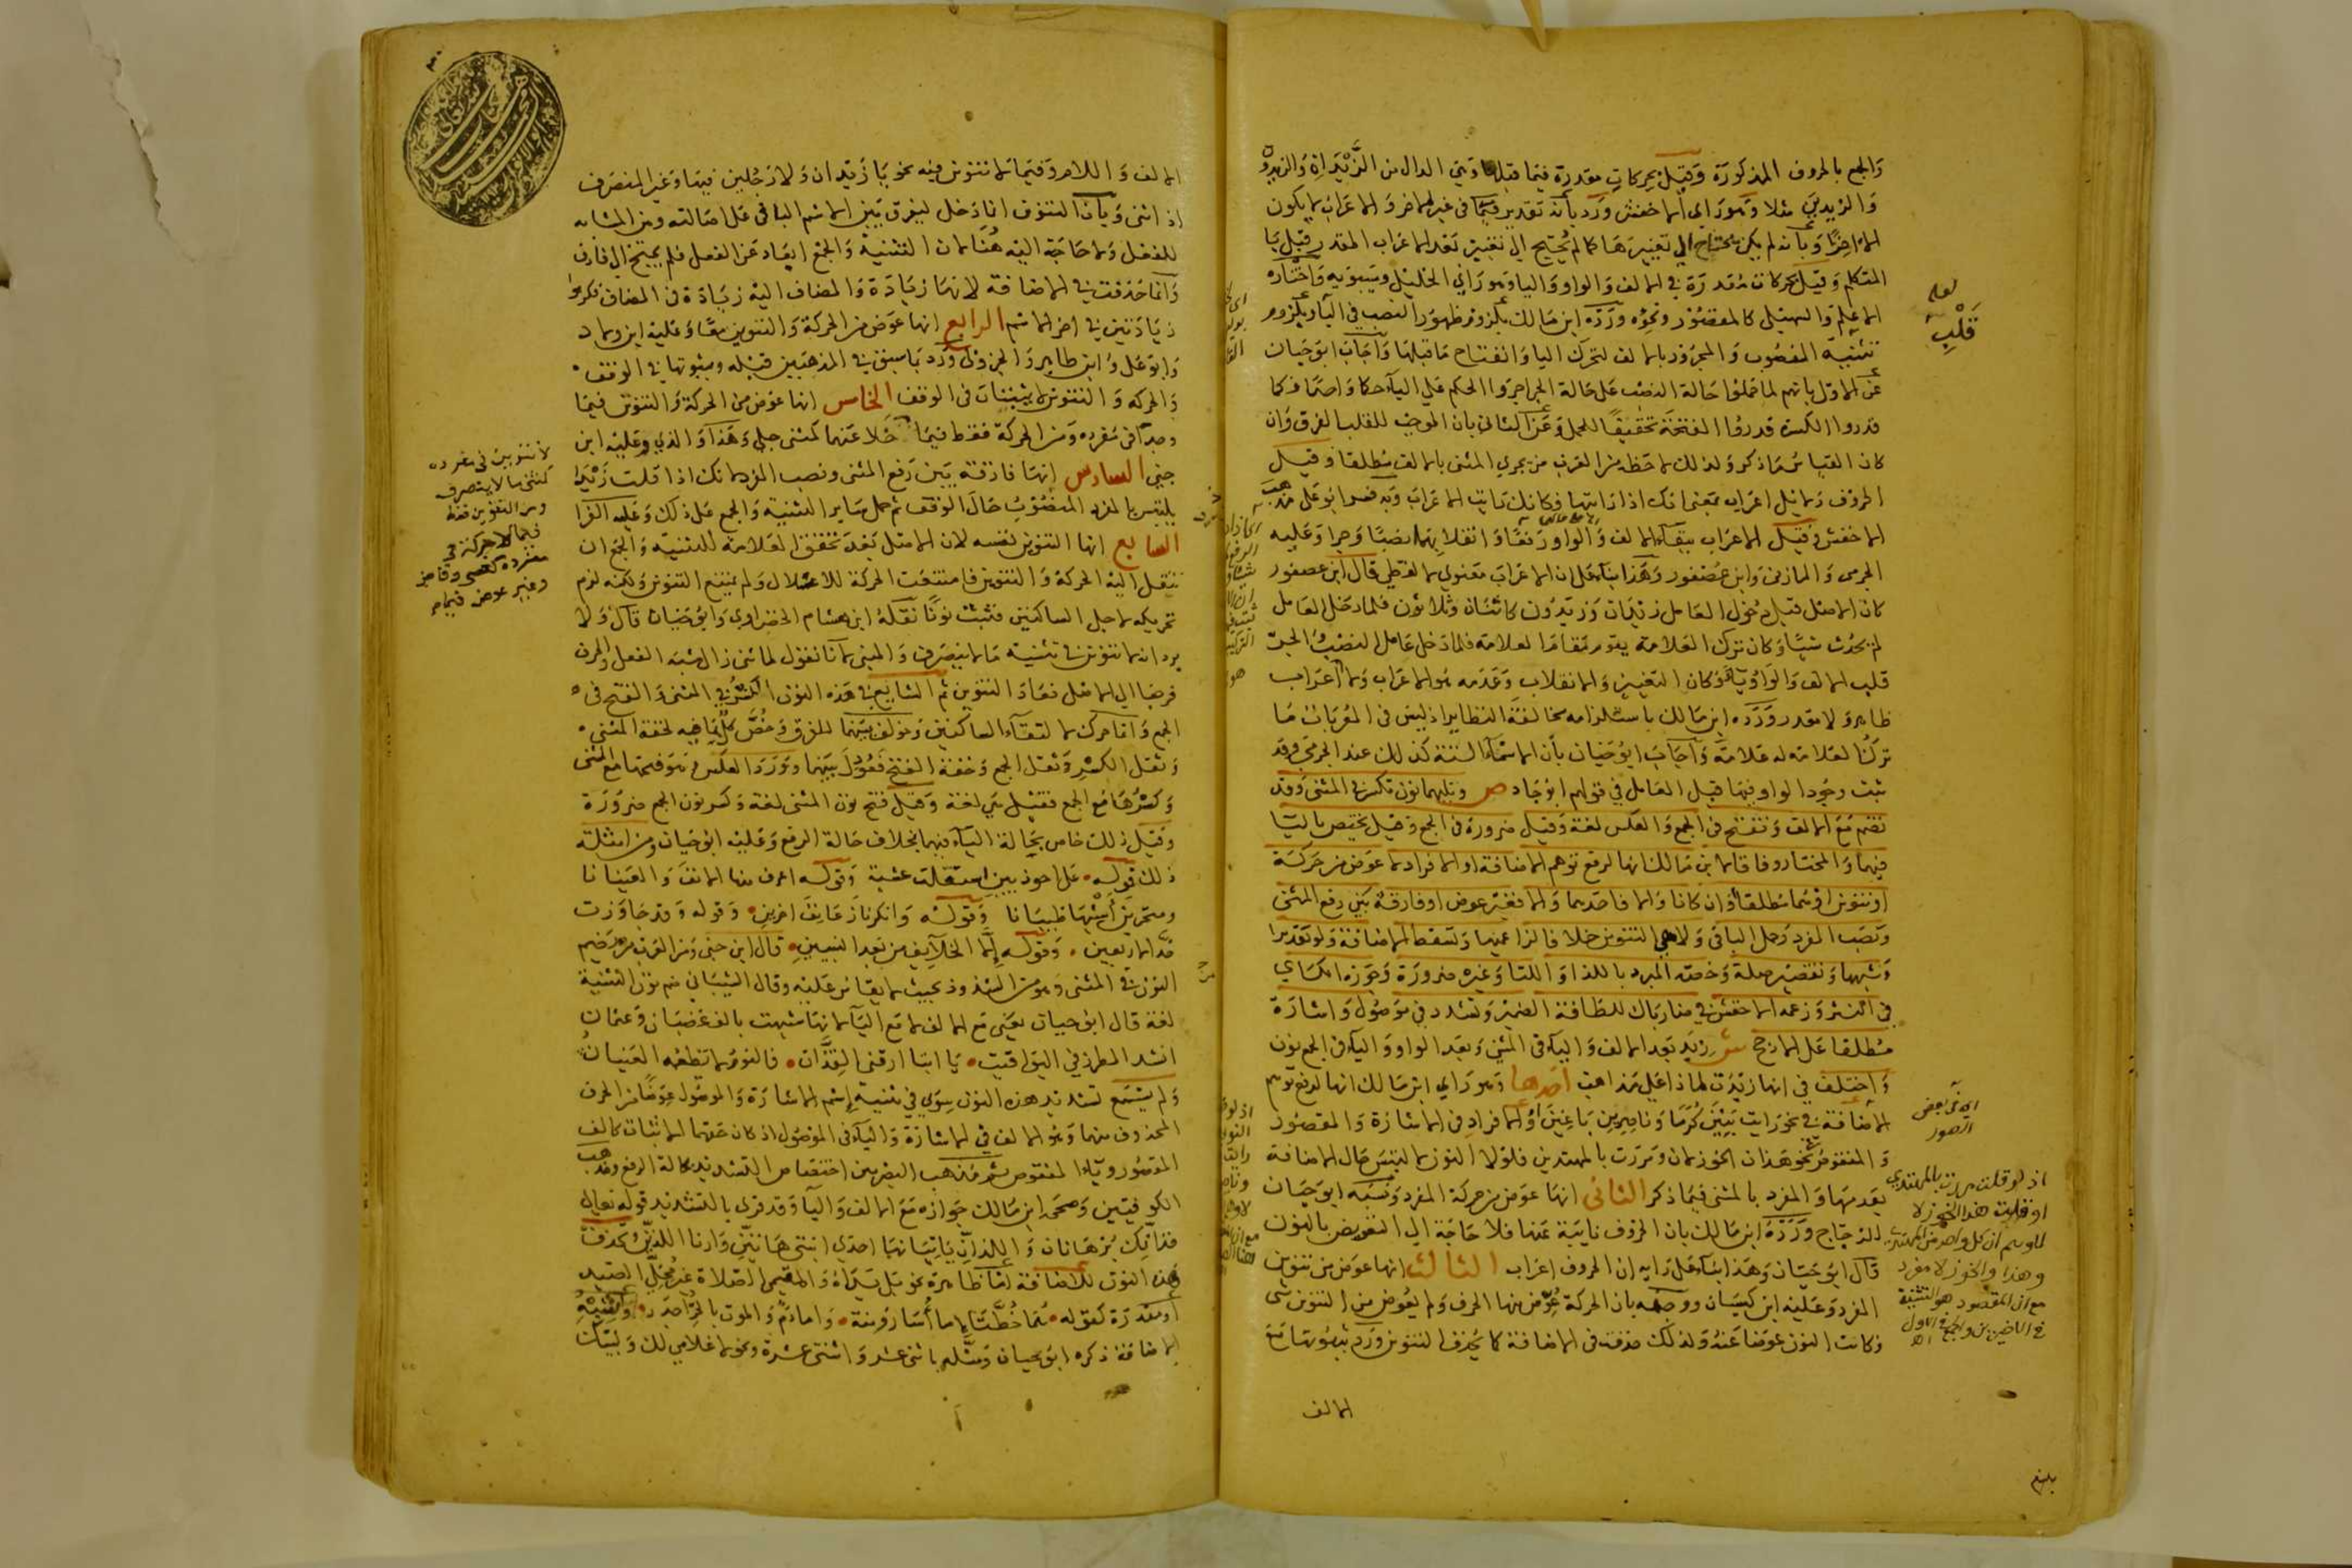 والجمع بالحروف المذكورة وقيل بحركات مقدرة فيما قبلها وهي الدال من الزيدان والزيدون
والزيدين مثلا وهو راي الاخفش ورد بانه تقدير في غير الاخر والاعراب لا يكون
الا اخرا وبانه لم يكن يحتاج الى تغييرها كما لم يحتج الى تغيير بعد الاعراب المقدر قبل يا
المتكلم وقيل بحركات مقدرة في الالف والواو والياء وهو راي الخليل وسيبويه واختاره
الاعلم والسهيلي كالمقصور ونحوه ورده ابن مالك بلزوم ظهور النصب في الياء وبلزوم
تثنية المنصوب والمجرور بالالف لتحرك الياء وانفتاح ما قبلها واجاب ابو حيان
عن الاول بانهم لما حملوا حالة النصب على حالة الجر اجروا الحكم على الياء حكما واحدا فكما
قدروا الكسرة قدروا الفتحة تحقيقا للحمل وعن الثاني بان الموجب للقلب الفرق وان
كان القياس ما ذكر ولذلك لاحظه من العرب من يجري المثنى بالالف مطلقا وقيل
الحروف دلائل اعراب بمعنى انك اذا رايتها فكانك رايت الاعراب وبه فسر ابو علي مذهب
الاخفش وقيل الاعراب ببقاء الالف والواو رفعا وانقلابهما نصبا وجرا وعليه
الجرمي والمازني وابن عصفور وهذا بناء على ان الاعراب معنوي لا لفظي قال ابن عصفور
كان الاصل قبل دخول العامل زيدان وزيدون كاثنان وثلاثون فلما دخل العامل
لم يحدث شيئا وكان ترك العلامة يقوم مقام العلامة فلما دخل عامل النصب والجر
قلب الالف والواو ياء فكان التغيير والانقلاب وعدمه هو الاعراب ولا اعراب
ظاهر ولا مقدر ورده ابن مالك باستلزامه مخالفة النظاير اذ ليس في المعربات ما
ترك العلامة له علامة واجاب ابو حيان بان الاسماء الستة كذلك عند الجرمي وقد
ثبت وجود الواو فيها قبل العامل في قولهم ابو جاد ص وتليهما نون تكسر في المثنى وقد
تضم مع الالف وتفتح في الجمع والعكس لغة وقيل ضرورة في الجمع وقيل يختص باليا
فيهما والمختار وفاقا لابن مالك انها لرفع توهم الاضافة او الافراد لا عوض من حركة
او تنوين او هما مطلقا او ان كانا والا فاحدهما والا فغير عوض او فارقة بين رفع المثنى
ونصب المفرد وحمل الباقي ولا هي التنوين خلافا لزاعميها وتسقط للاضافة ولو تقديرا
وشبهها وتقصير صلة وخصه المبرد باللذا واللتا وغيره ضرورة وجوزه الكساي
في النثر وزعمه الاخفش في ضارباك للطافة الضمير وتشدد في موصول واشارة
مطلقا على الارجح ش زيد بعد الالف والياء في المثنى وبعد الواو والياء في الجمع نون
واختلف في انها زيدت لماذا على مذاهب احدها وهو راي ابن مالك انها لدفع توهم
الاضافة في نحو رايت بنين كرما وناصرين باغين والافراد في الاشارة والمقصور
والمنقوص نحو هذان الخوزلان ومررت بالمهتدين فلولا النون لالتبس حال الاضافة
بعدمها والمفرد بالمثنى فيما ذكر الثاني انها عوض من حركة المفرد ونسبه ابو حيان
للزجاج ورده ابن مالك بان الحروف نايبة عنها فلا حاجة الى التعويض بالنون
قال ابو حيان وهذا بناء على رايه ان الحروف اعراب الثالث انها عوض من تنوين
المفرد وعليه ابن كيسان ووجهه بان الحركة عوض منها الحرف ولم يعوض من التنوين شي
فكانت النون عوضا عنه ولذلك حذفت في الاضافة كما يحذف التنوين ورد بثبوتها مع
الالف
لعله
قلب
اي في بعض
الصور
اذ لو قلت مررت بالمهتدي
او قلت هذا الخوزلا
لتوهم ان كل واحد من المهتدي
وهذا والخوزلا مفرد
مع ان المقصود هو التثنية
في الاخيرين والجمع في الاول
اه
بلغ
الالف واللام وفيما لا تنوين فيه نحو يا زيدان ولا رجلين فيها وغير المنصرف
اذا ثنى وبان التنوين انما دخل ليفرق بين الاسم الباقي على اصالته وبين المشابه
للفعل ولا حاجة اليه هنا لان التثنية والجمع ابعداه عن الفعل فلم يحتج الى فارق
وانما حذفت في الاضافة لانها زيادة والمضاف اليه زيادة في المضاف فكرهوا
زيادتين في اخر الاسم الرابع انها عوض من الحركة والتنوين معا وعليه ابن ولاد
وابو علي وابن طاهر والجزولي ورد بما سبق في المذهبين قبله وبثبوتها في الوقف
والحركة والتنوين لا يثبتان في الوقف الخامس انها عوض من الحركة والتنوين فيما
وجدا في مفرده ومن الحركة فقط فيما خلا عنهما كمثنى حبلى وهذا والذي وعليه ابن
جني السادس انها فارقة بين رفع المثنى ونصب المفرد لانك اذا قلت زيدا
يلتبس بالمفرد المنصوب حال الوقف ثم حمل ساير التثنية والجمع على ذلك وعليه الفرا
السابع انها التنوين نفسه لان الاصل بعد تحقق العلامة للتثنية والجمع ان
تنتقل اليه الحركة والتنوين فامتنعت الحركة للاعتلال ولم يمتنع التنوين ولكنه لزم
تحريكه لاجل الساكنين فثبت نونا نقله ابن هشام الخضراوي وابو حيان قال ولا
يرد انه لا تنوين في تثنية ما لا ينصرف والمبني لانا نقول لما ثنى زال شبه الفعل والحرف
فرجع الى الاصل فعاد التنوين ثم الشايع في هذه النون الكسر في المثنى والفتح في
الجمع وانما حركت لالتقاء الساكنين وخولف بينهما للفرق وخص كل بما فيه لخفة المثنى
وثقل الكسر وثقل الجمع وخفة الفتح فعودل بينهما وورد العكس وهو فتحها مع المثنى
وكسرها مع الجمع فقيل هي لغة وقيل فتح نون المثنى لغة وكسر نون الجمع ضرورة
وقيل ذلك خاص بحالة الياء فيهما بخلاف حالة الرفع وعليه ابو حيان ومن امثلة
ذلك قوله على احوذيين استقلت عشية وقوله اعرف منها الانف والعينانا
ومنخرين اشبها ظبيانا وقوله وانكرنا زعانف اخرين وقوله وقد جاوزت
حد الاربعين وقوله انما الخلايف من بعد النبيين قال ابن جني ومن العرب من يضم
النون في المثنى وهو من الشذوذ بحيث لا يقاس عليه وقال الشيباني ضم نون التثنية
لغة قال ابو حيان يعني مع الالف لا مع الياء لانها شبهت بالف غضبان وعثمان
انشد المطرز في اليواقيت يا ابتا ارقني القذان فالنوم لا تطعمه العينان
ولم يسمع تشديد هذه النون سوى في تثنية اسم الاشارة والموصول عوضا من الحرف
المحذوف منهما وهو الالف في الاشارة والياء في الموصول اذ كان حقهما الاثبات كالف
المقصور وياء المنقوص ثم مذهب البصريين اختصاص التشديد بحالة الرفع ومذهب
الكوفيين وصححه ابن مالك جوازه مع الالف والياء وقد قرى بالتشديد قوله تعالى
فذانك برهانان واللذان ياتيانها احدى ابنتي هاتين وارنا اللذين وتحذف
هذه النون للاضافة اما ظاهرة نحو بل يداه والمقيمي الصلاة غير محلي الصيد
او مقدرة كقوله هما خطتا اما اسار ومنة واما دم والموت بالحر اجدر ولشبه
الاضافة ذكره ابو حيان ومثله باثنى عشر واثنتي عشرة ونحو لا غلامي لك ولبيك
لا تنوين في مفرده
كمثنى ما لا ينصرف
ومن التنوين فقط
فيما لا حركة في
مفرده كعصى وقاض
وغير عوض فيما